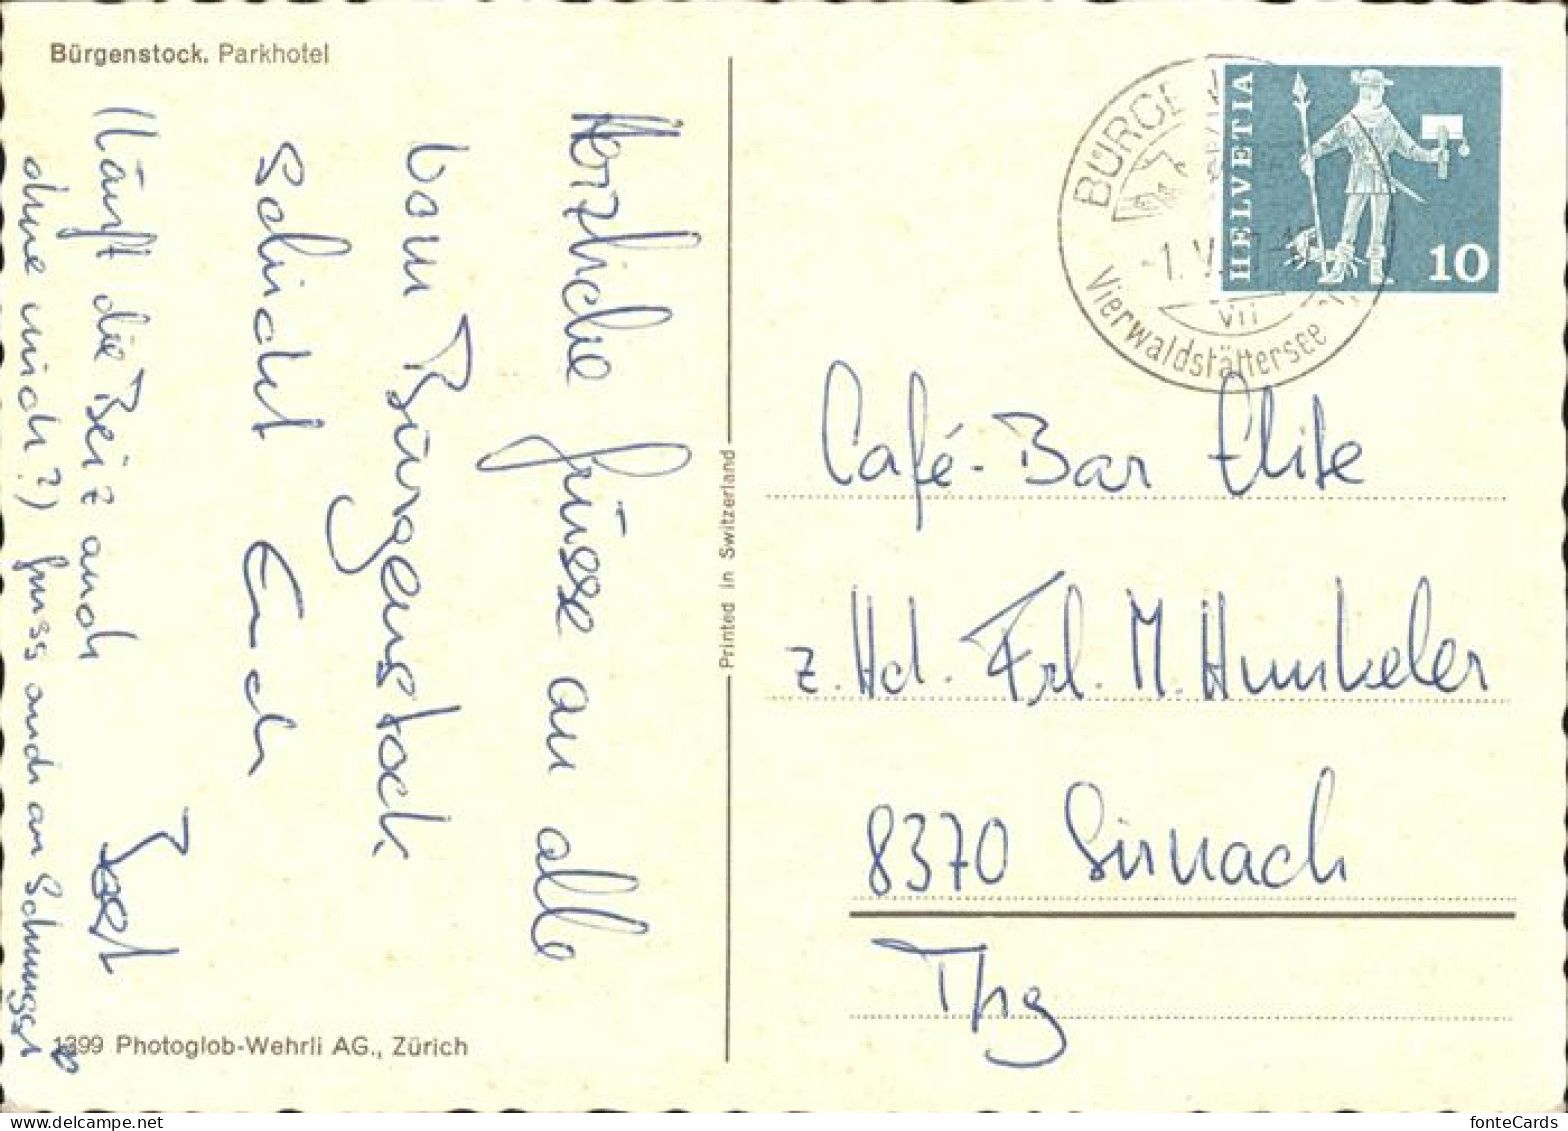 Bürgenstock. Parkhotel
Herzliche Grüsse an alle
vom Bürgenstock
schickt Euch
(Läuft die Beiz auch
ohne mich?) gruss auch an
1399 Photoglob-Wehrli AG., Zürich
Printed in Switzerland
BÜRGE
-1. V.
VII
Vierwaldstättersee
HELVETIA
10
Café-Bar Elite
z. Hd. Frl. M. Hunkeler
8370 Sirnach
Thg
delcampe.net
fonteCards